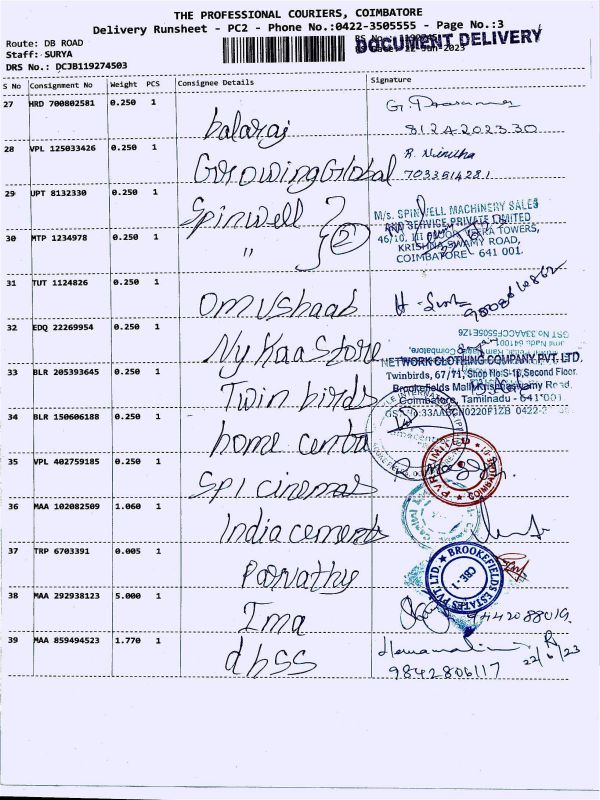 THE PROFESSIONAL COURIERS, COIMBATORE
Delivery Runsheet - PC2 - Phone No.:0422-3505555 - Page No.:3
Route: DB ROAD
DOCUMENT DELIVERY
Staff: SURYA
DRS No.: DCJB119274503
S No Consignment No Weight PCS Consignee Details Signature
27 HRD 700802581 0.250 1 balaraj
8124202330
28 VPL 125033426 0.250 1 Growing Global R. Nivitha
7033514281
29 UPT 8132330 0.250 1 Spinwell
M/s. SPINWELL MACHINERY SALES
AND SERVICE PRIVATE LIMITED
30 MTP 1234978 0.250 1 " 2
KRISHNASWAMY ROAD,
COIMBATORE - 641 001.
31 TUT 1124826 0.250 1 om Vshaab
32 EDQ 22269954 0.250 1 Nykaa Store
GST No 33AACCF5505E1Z6
NETWORK CLOTHING COMPANY PVT. LTD.
33 BLR 205393645 0.250 1 Twin birds
Twinbirds, 67/71, Shop No S-10, Second Floor.
Coimbatore, Tamilnadu - 641 001
34 BLR 150606188 0.250 1 home centra
35 VPL 402759185 0.250 1 SPI cinemas
PVR LIMITED
COIMBATORE
36 MAA 102082509 1.060 1 India cements
37 TRP 6703391 0.005 1 Parvathy
BROOKEFIELDS ESTATES PVT. LTD.
CBE-1
38 MAA 292938123 5.000 1 Ima
9442088019
39 MAA 859494523 1.770 1 dhss
9842806117
22/6/23